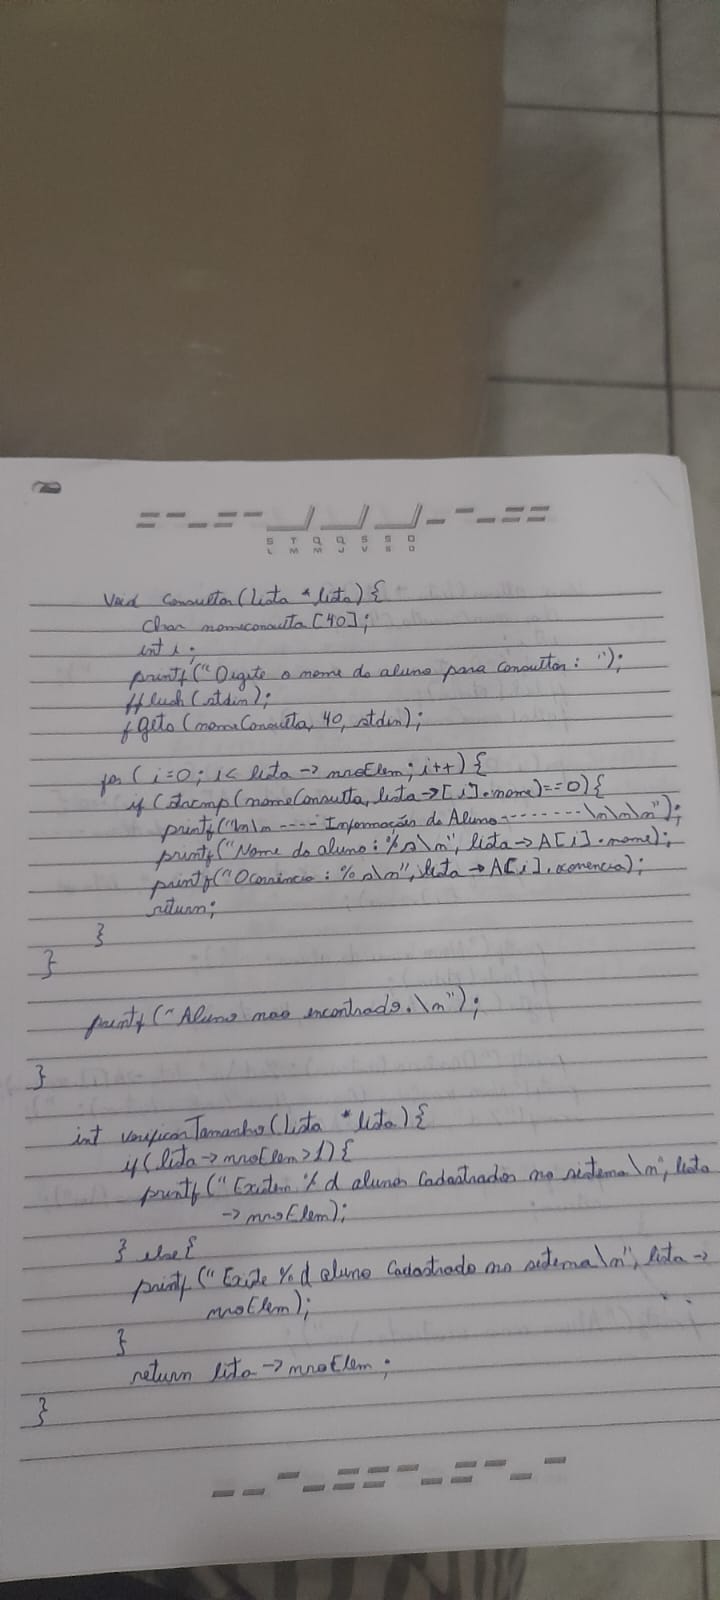 S T Q Q S S D
L M M J V S D
Void Consultar(Lista * lista) {
Char nomeconsulta [40];
int i;
printf("Digite o nome do aluno para Consultar: ");
fflush(stdin);
fgets(nomeConsulta, 40, stdin);
for (i=0; i< lista -> nroElem; i++) {
if (strcmp(nomeConsulta, lista->[i].nome)==0) {
printf("\n\n ---- Informação do Aluno--------\n\n\n");
printf("Nome do aluno: %s\n", lista-> A[i].nome);
printf("Ocorrência: %s\n", lista -> A[i].
return;
}
}
printf("Aluno nao encontrado.\n");
}
int verificarTamanho(Lista *lista) {
if(lista->nroElem>1) {
printf("Existem %d alunos Cadastrados no sistema\n", lista
->nroElem);
} else {
printf("Existe %d aluno Cadastrado no sistema\n", lista ->
nroElem);
}
return lista->nroElem;
}